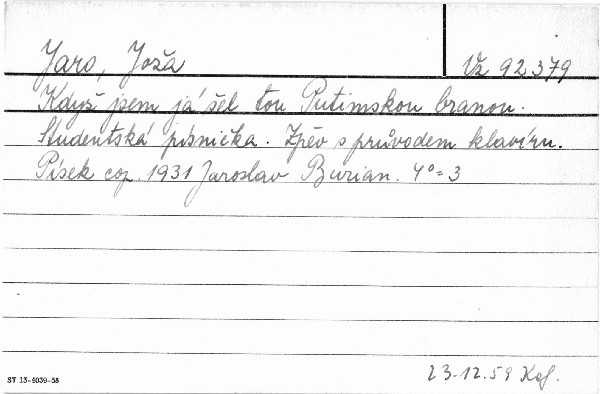 Jaro, Joža
Vž 92379
Když jsem já šel tou Putimskou branou.
Studentská písnička. Zpěv s průvodem klavíru.
Písek cop. 1931 Jaroslav Burian. 4° = 3
23.12.59 Kof.
ST 13-4039-58